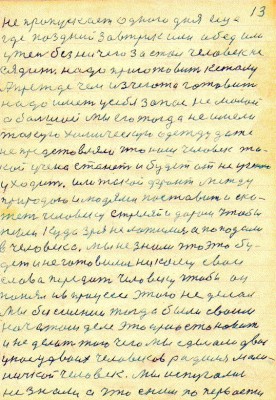 13
не пропускает одного дня слу-
где поздний завтрак или обед или
ужен без ничего за стол человек не
сядит. надо приготовить к столу
А прежде чем из чего та готовить
надо иметь у себя запас не малой
а большой мы его тогда не имели
такую химическую одежду даже
не представляли что наш человек та-
кой сумеет и будет от не нужного
уходить. или такой фронт между
природою и людями поставит и ска-
жет человеку стреляй дорогой чтобы
пули куда зря не ложилися а попадали
в человека. мы не знали что это бу-
дет и не готовили никому свои
слова передать человеку чтобы он
понял и в процессе этого не делал
Мы бессильны тогда были своим
начатым деле это приостановить
и не делать того что мы сделали двои
у двоих человеков родился мален-
ничкой человек. Мы испугались
не знали а что с ним по первости